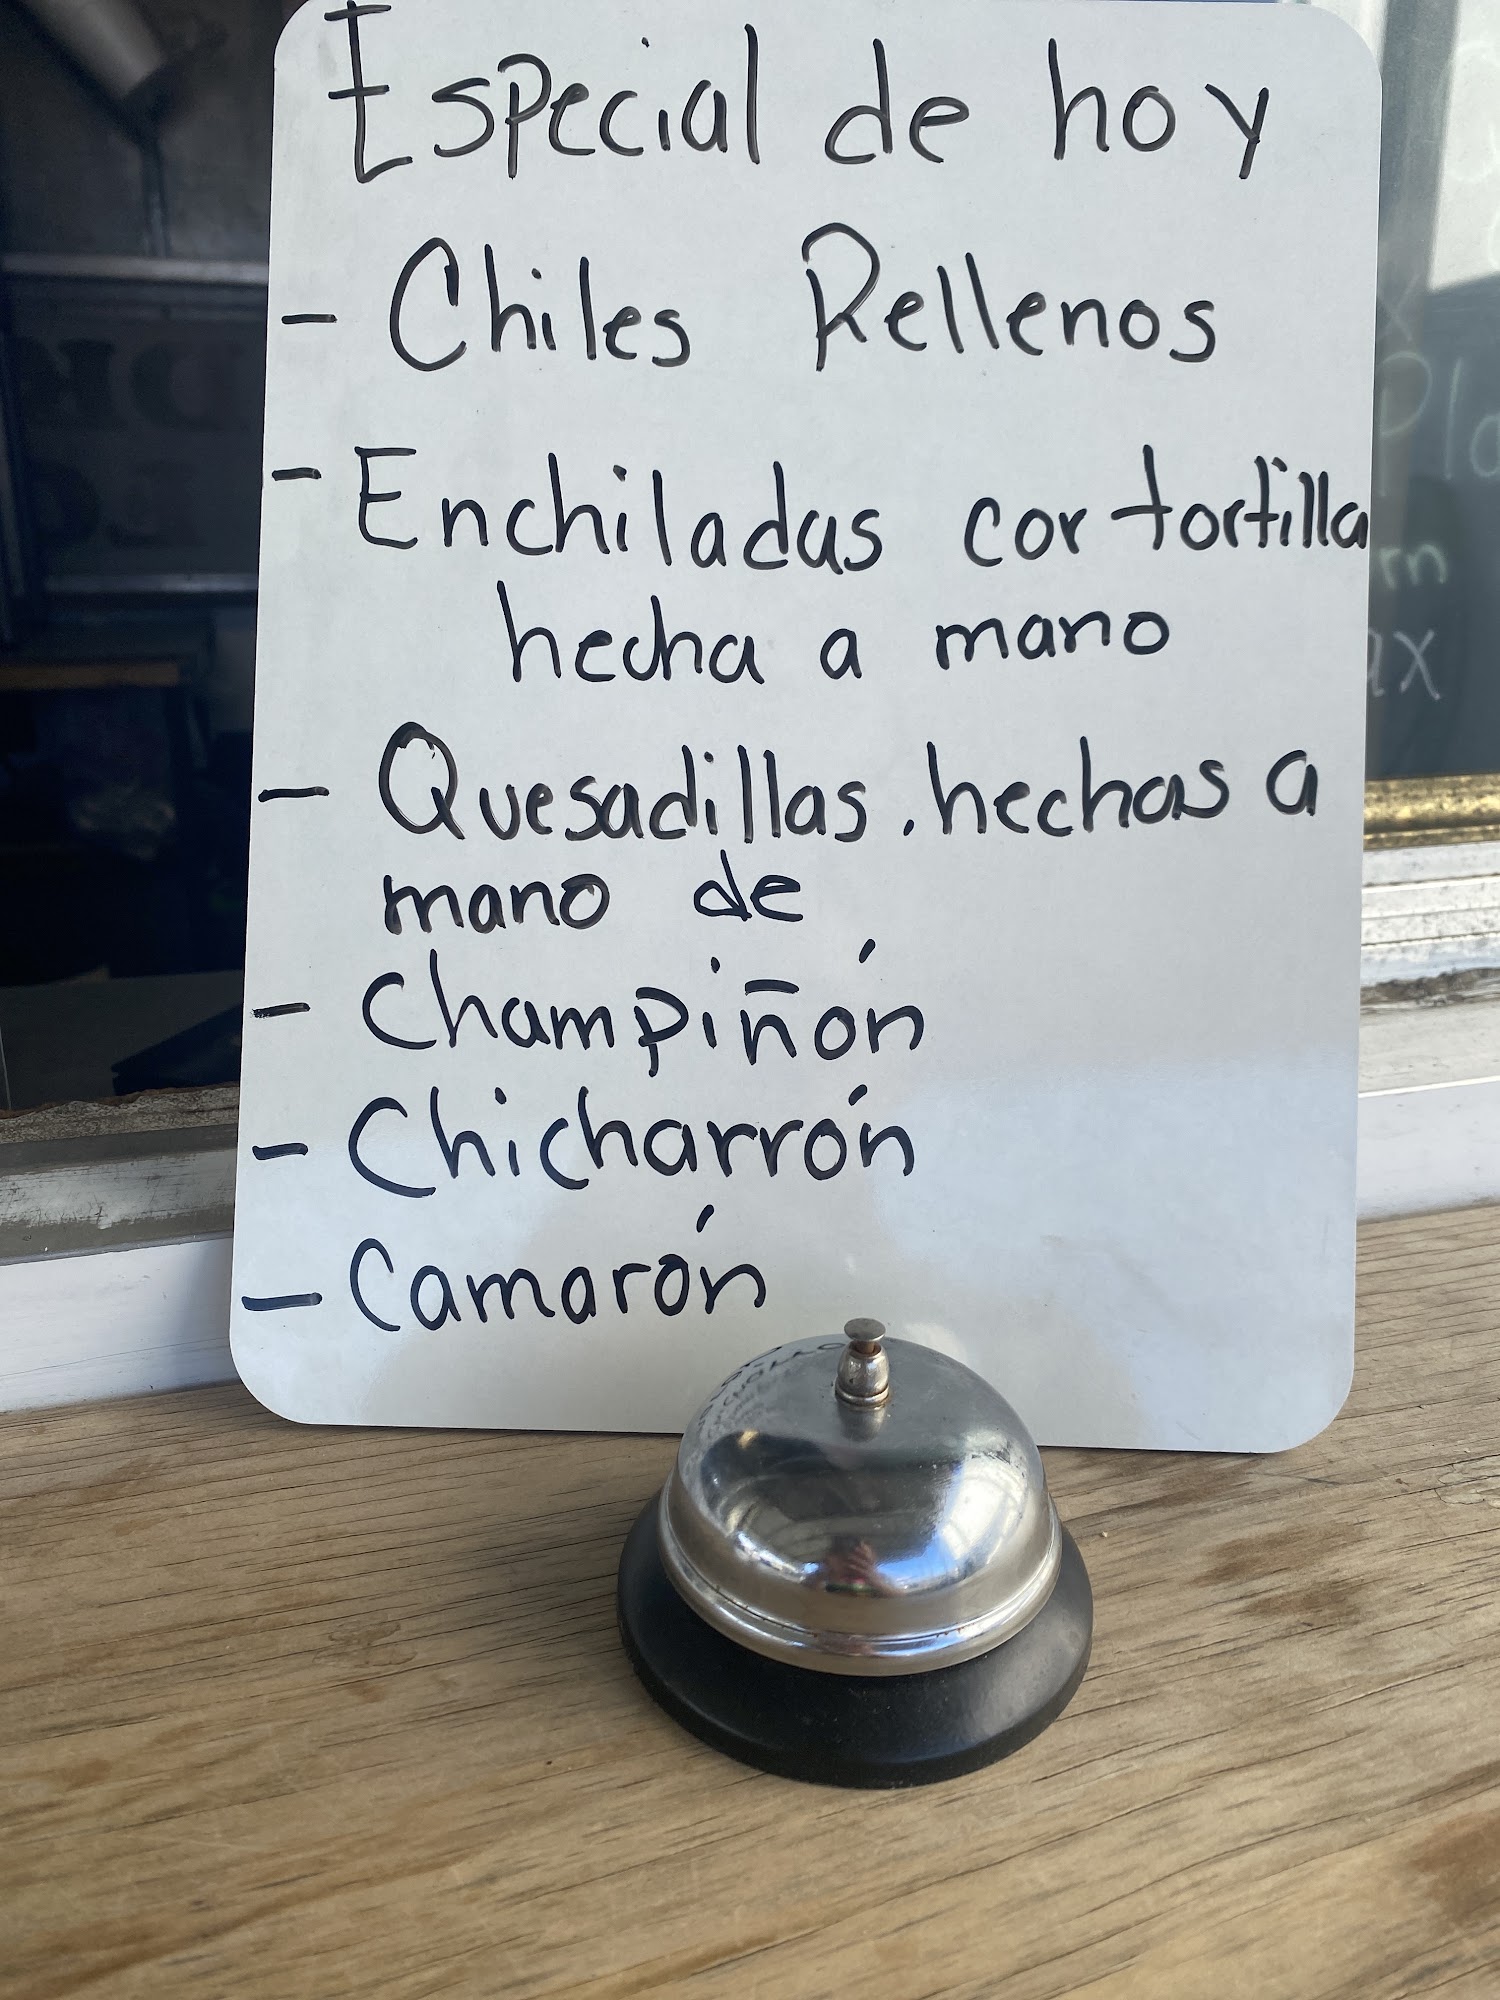 Especial de hoy
- Chiles Rellenos
- Enchiladas con tortilla
hecha a mano
- Quesadillas. hechas a
mano de
- Champiñón
- Chicharrón
- Camarón